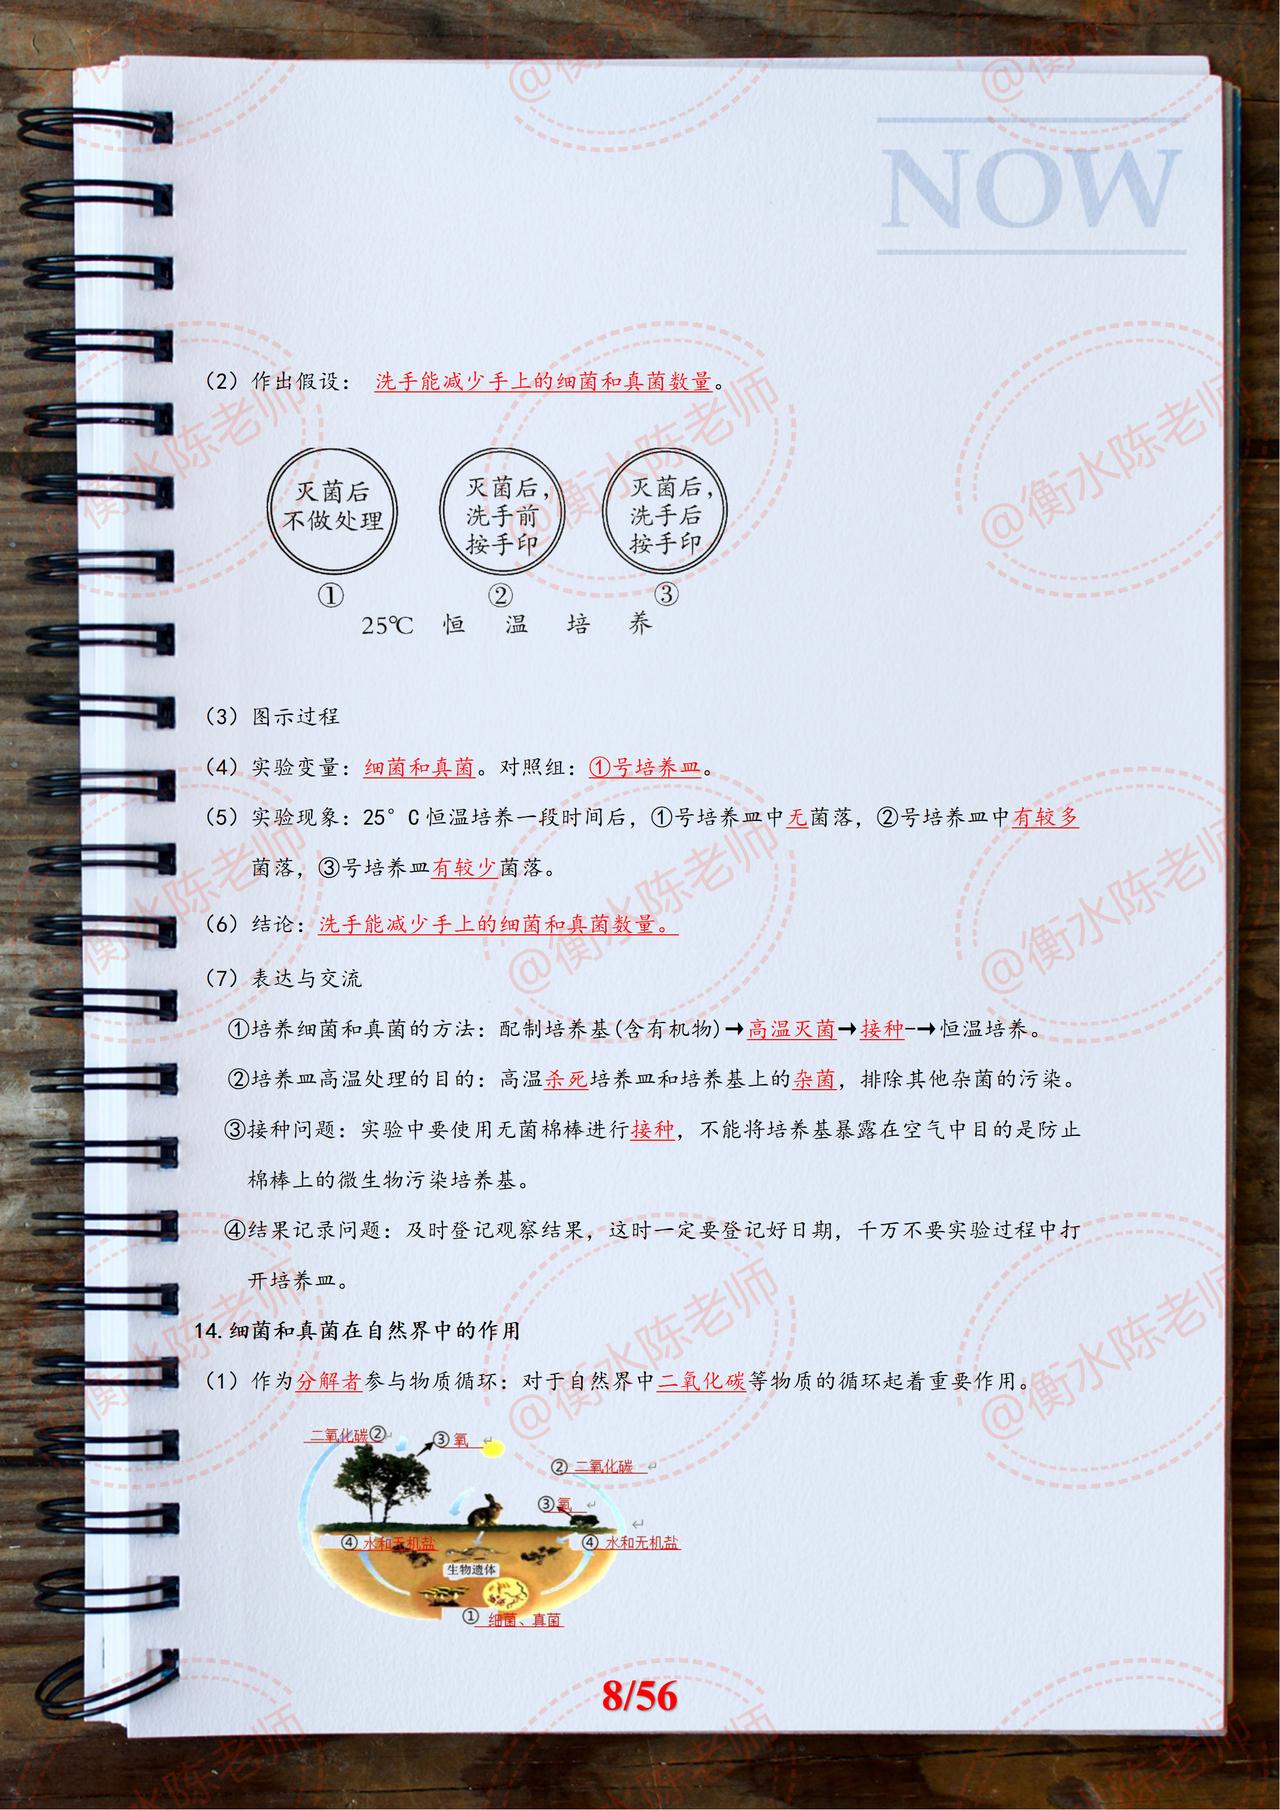 NOW
（2）作出假设： 洗手能减少手上的细菌和真菌数量。
灭菌后
不做处理
灭菌后，
洗手前
按手印
灭菌后，
洗手后
按手印
① ② ③
25℃ 恒 温 培 养
（3）图示过程
（4）实验变量：细菌和真菌。对照组：①号培养皿。
（5）实验现象：25°C恒温培养一段时间后，①号培养皿中无菌落，②号培养皿中有较多
菌落，③号培养皿有较少菌落。
（6）结论：洗手能减少手上的细菌和真菌数量。
（7）表达与交流
①培养细菌和真菌的方法：配制培养基(含有机物)→高温灭菌→接种-→恒温培养。
②培养皿高温处理的目的：高温杀死培养皿和培养基上的杂菌，排除其他杂菌的污染。
③接种问题：实验中要使用无菌棉棒进行接种，不能将培养基暴露在空气中目的是防止
棉棒上的微生物污染培养基。
④结果记录问题：及时登记观察结果，这时一定要登记好日期，千万不要实验过程中打
开培养皿。
14.细菌和真菌在自然界中的作用
（1）作为分解者参与物质循环：对于自然界中二氧化碳等物质的循环起着重要作用。
二氧化碳② ③ 氧
② 二氧化碳
③ 氧
④ 水和无机盐 ④ 水和无机盐
生物遗体
① 细菌、真菌
8/56
@衡水陈老师